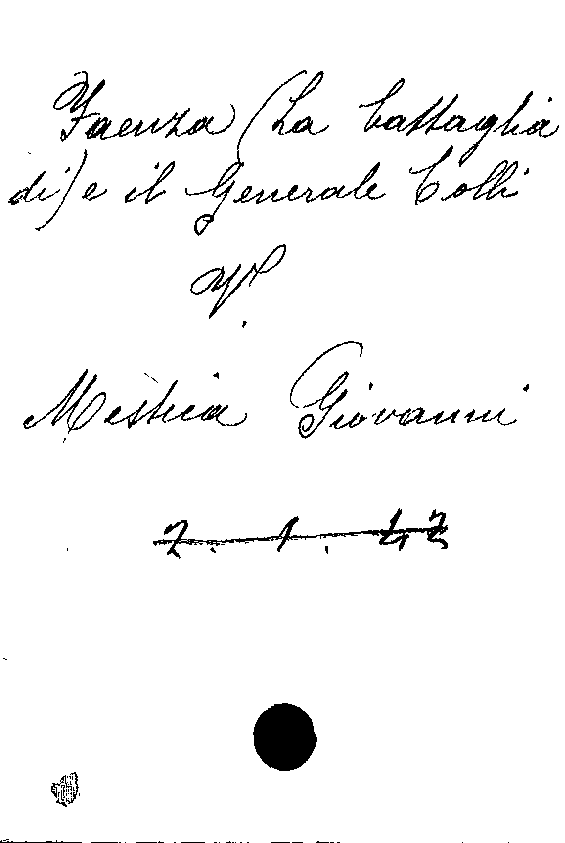 Faenza (La battaglia
di) e il Generale Colli
V.
Mestica Giovanni
2. 1. 42